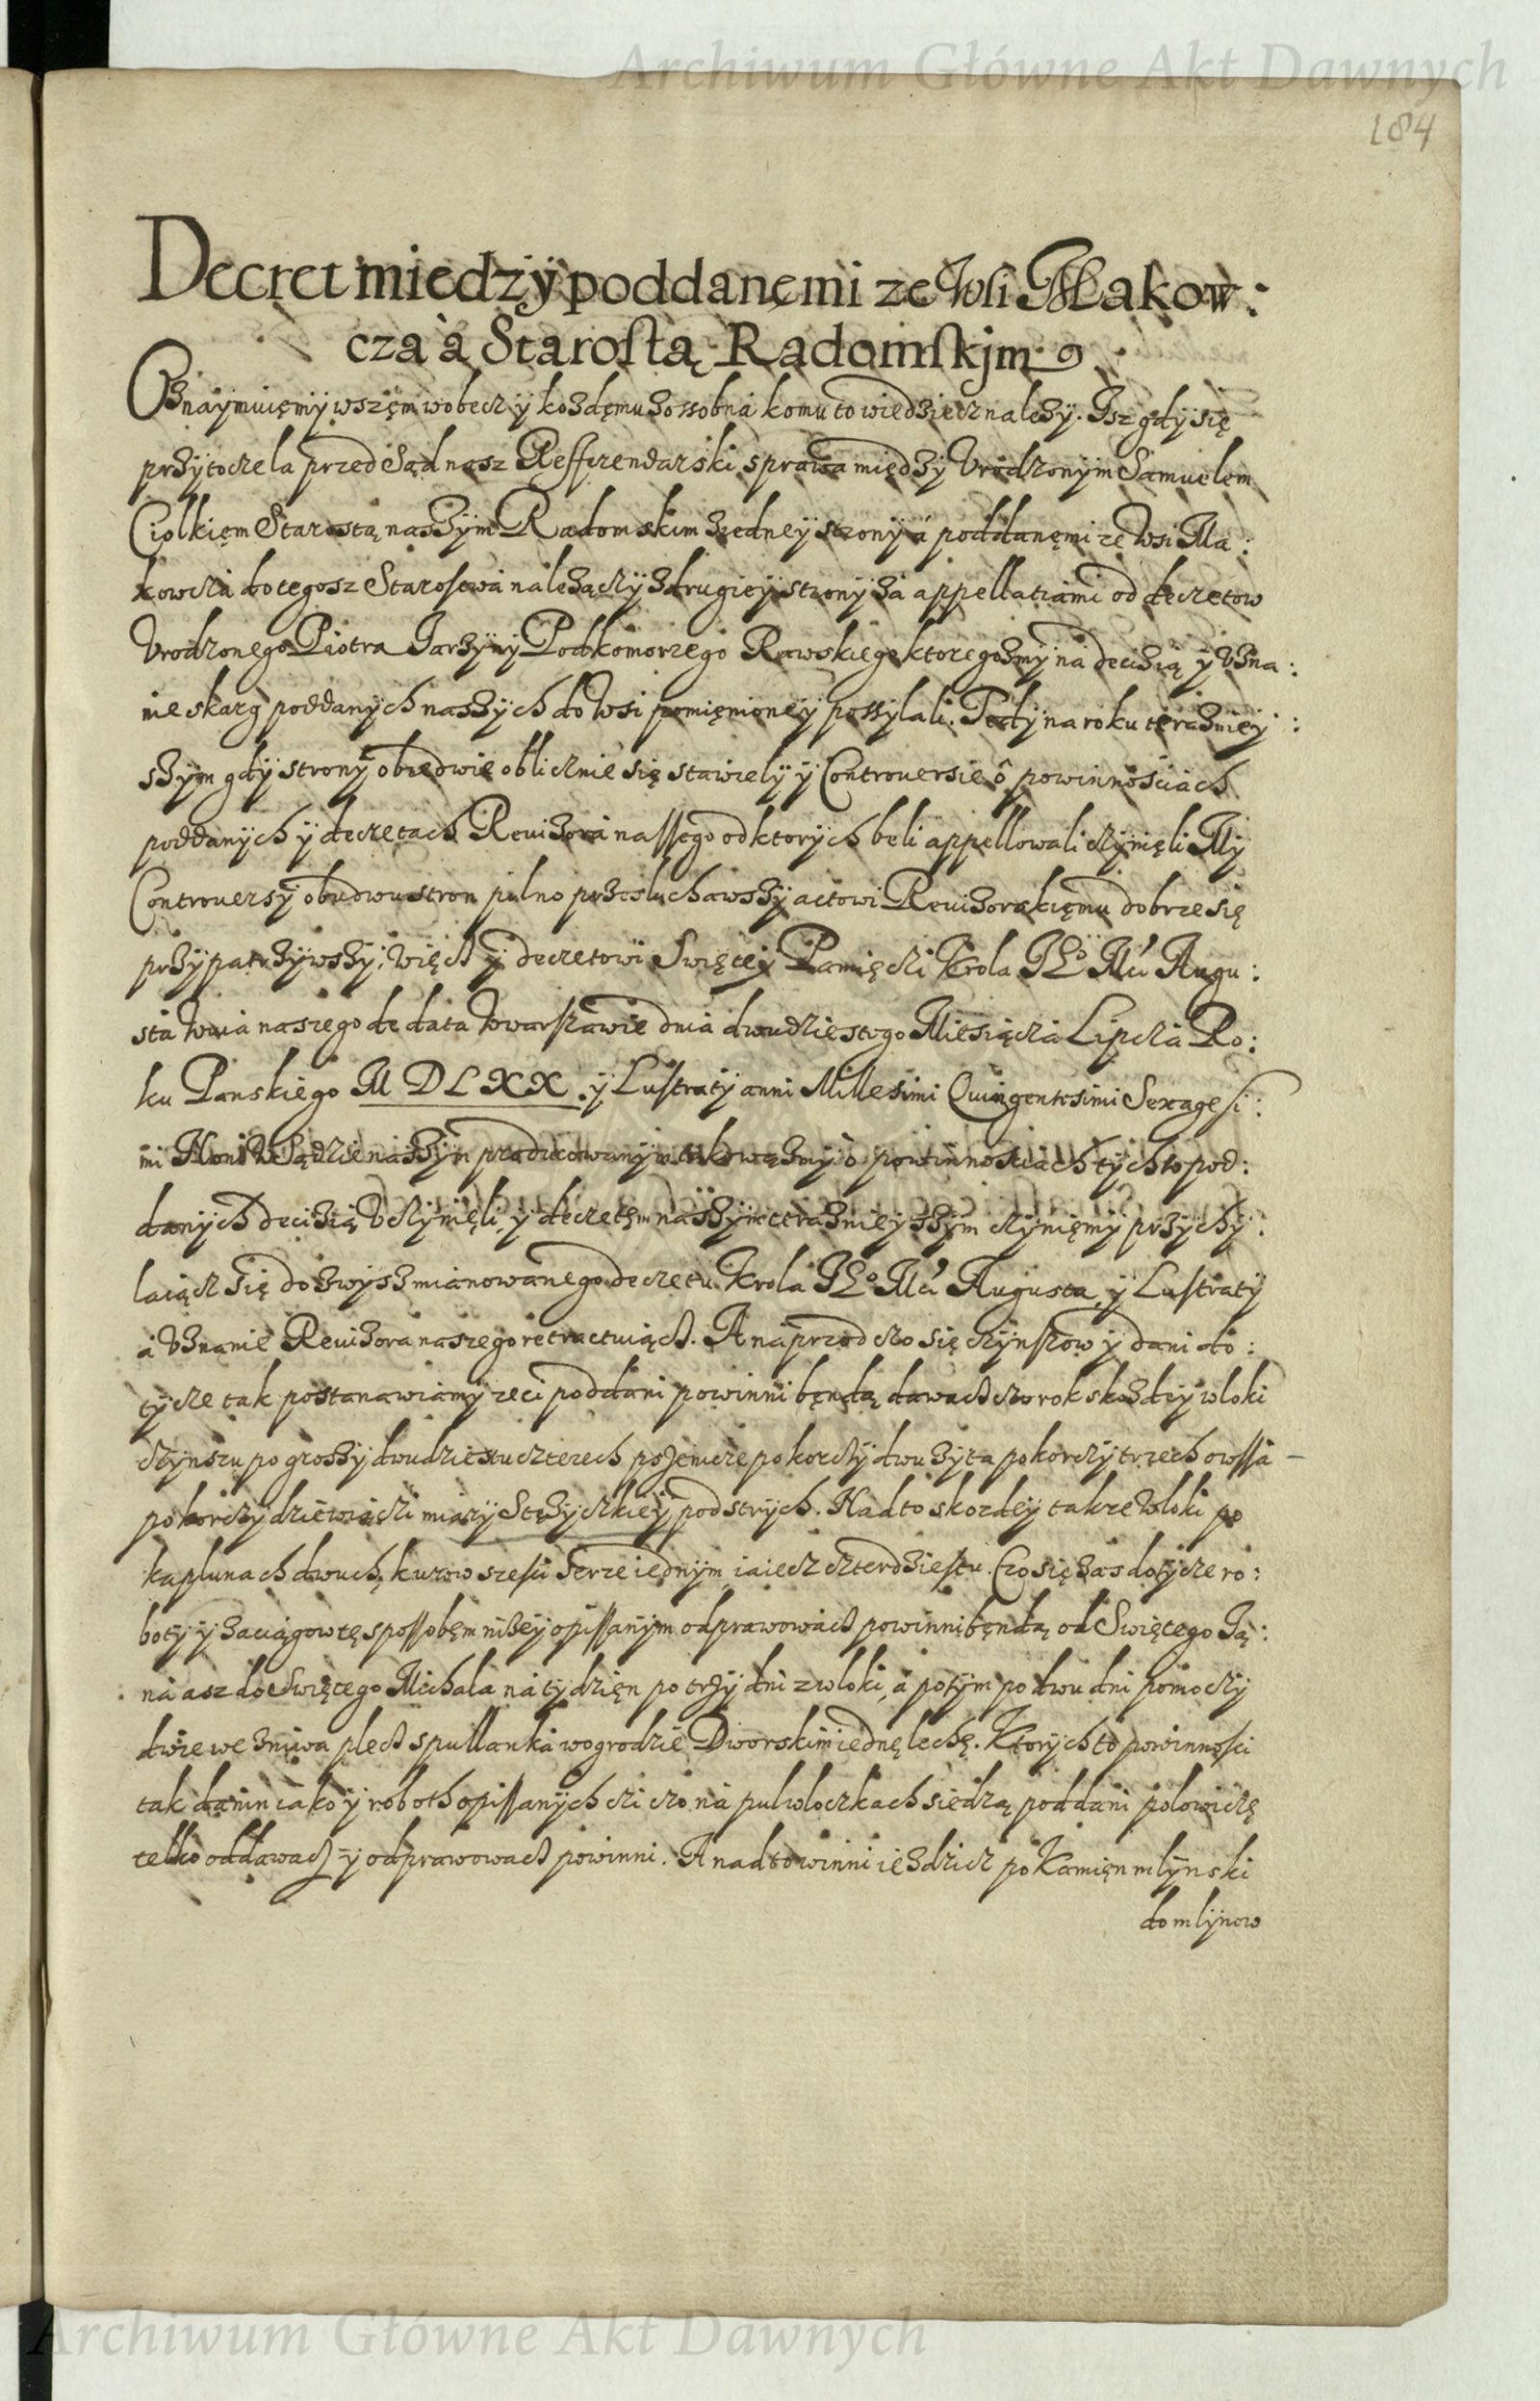 Archiwum Główne Akt Dawnych
184
Decret miedzÿ poddanęmi ze Wsi Makow:
cza à Starostą Radomskjm
Oznaÿmuięmÿ wszęm wobecz ÿ kozdęmu zossobna komu to wiedziecz nalezÿ. Isz gdÿ się
przÿtoczela przed Sąd nasz Refferendarski sprawa międzÿ Vrodzonÿm Samuelem
Ciolkięm Starostą naszÿm Radomskim z iedneÿ stronÿ á poddanęmi ze Wsi Ma:
kowcza do tegosz Starostwa nalezączÿ z drugieÿ stronÿ za appellatiami od decretow
Vrodzonego Piotra Jarzÿnÿ Podkomorzego Rawskiego ktoregozmÿ na decizią ÿ Vzna:
nie skarg poddanÿch naszÿch do Wsi pomięnioneÿ possÿlali. Tedÿ na roku terazniéÿ:
szÿm gdÿ stronÿ obiedwie oblicznie się stawielÿ ÿ Controuersie o powinnosciach
poddanÿch ÿ decretach Reuizora nassego od ktorÿch beli appellowali czÿnięli Mÿ
Controuersÿ obudwu stron pilno przesluchawszÿ actowi Reuizorskięmu dobrze się
przÿpatrzÿwszÿ, więcz ÿ decretowi Swięteÿ Pamięczi Krola JEo Mći Augu:
sta Wuia naszego de data w Warszawie dnia dwudziestego Miesiącza Lipcza Ro:
ku Panskiego M D L X X. ÿ Lustratÿ anni Millesimi Quingentesimi Sexagesi:
mi Noni w Sądzie naszÿm producowanÿm takowązmÿ o powinnosciach tÿchto pod:
danÿch decizią Vczÿnięli, ÿ decretęm naszÿm terazniéÿszÿm czÿnięmÿ przÿchÿ:
laiącz się do zwÿsz mianowanego decretu Krola JEo Mći Augusta, ÿ Lustratÿ
á Vznanie Reuizora naszego retractuiącz. A naprzod czo się czÿnszow ÿ dani do:
tÿcze tak postanawiamÿ ze ci poddani powinni będą dawacz czo rok s kozdeÿ wloki
czÿnszu po groszÿ dwudziestu czterech pszenicze po korczÿ dwu zÿta po korczÿ trzech owssa
po korczÿ dziewiączi miarÿ Stęzÿczkieÿ pod strÿch. Nadto s kozdeÿ takze Wloki po
kaplunach dwuch, kurow szesci Serze iednÿm, iaiecz czterdziestu. Czo się zas dotÿcze ro:
botÿ ÿ zaciągow tę sposobęm nizeÿ opissanÿm odprawowacz powinni będą od Swiętego Ja:
na asz do Swiętego Michala na tÿdzięn po trzÿ dni z wloki, á potÿm po dwu dni pomoczÿ
dwie we zniwa plecz s pullanka w ogrodzie Dworskim iednę lechę. Ktorÿch to powinnosci
tak danin iako ÿ roboth opissanÿch czi czo na pulwloczkach siedzą poddani polowiczę
telko oddawacz ÿ odprawowacz powinni. A nadto winni iezdzicz po Kamięn mlÿnski
do mlÿnow
Archiwum Główne Akt Dawnych